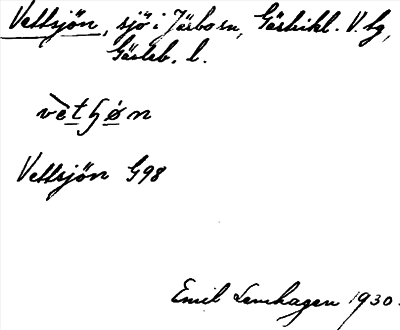 Vettsjön, sjö i Järbo sn, Gästrikl. V. tg,
Gävleb. l.
vètʃøn
Vettsjön G98
Emil Lemhagen 1930.